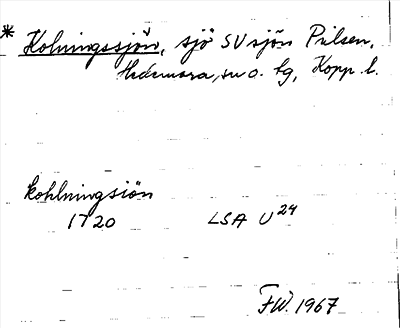 * Kolningssjön, sjö SV sjön Pilsen,
Hedemora, sn o. tg, Kopp. l.
Kohlningsiön
1720 LSA U24
F.W. 1967